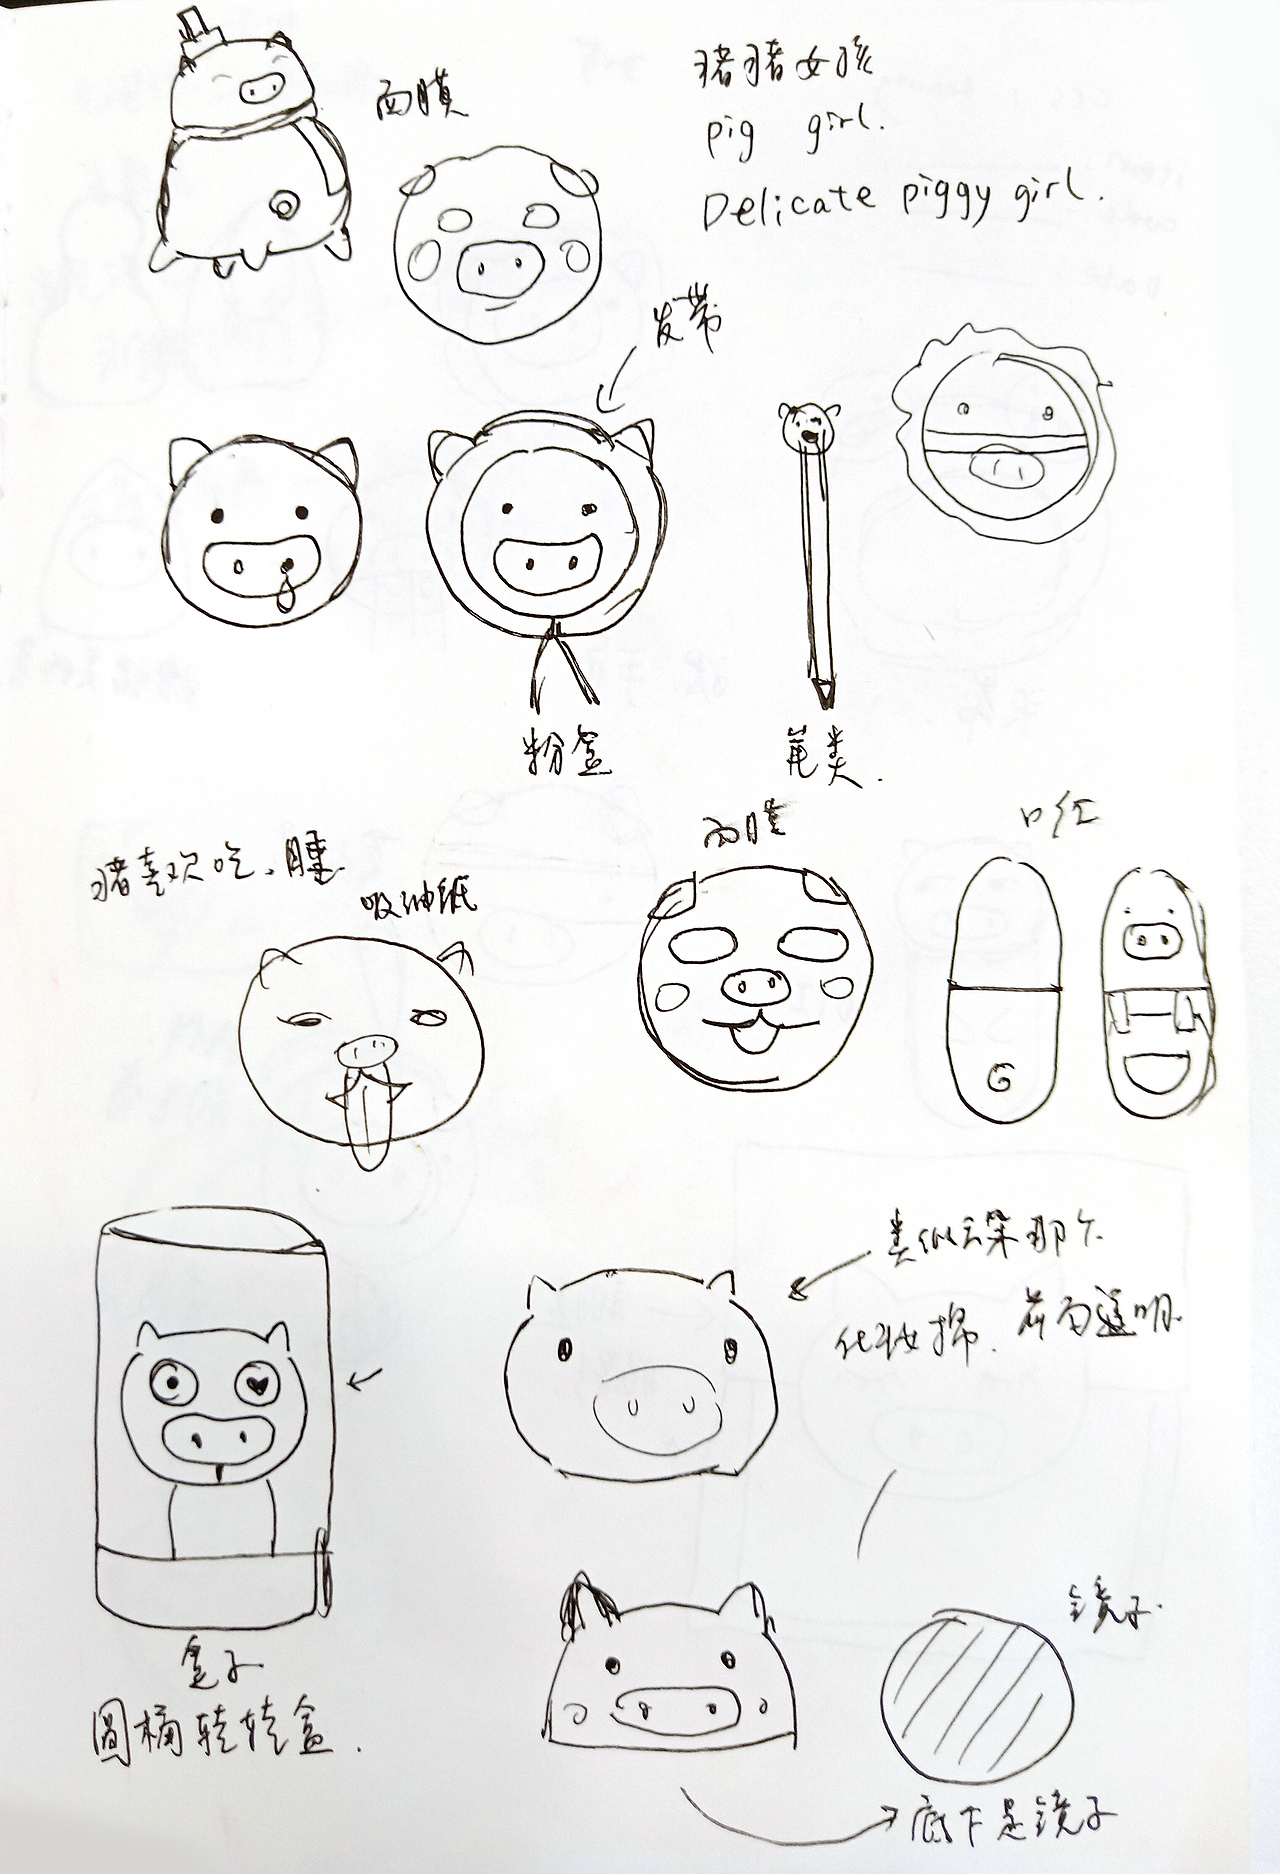 面膜
猪猪女孩
pig girl.
Delicate piggy girl.
发带
粉盒
笔类.
猪喜欢吃、睡
吸油纸
面膜
口红
G
类似云朵那个
化妆棉.
镜子.
盒子
圆桶转转盒.
底下是镜子